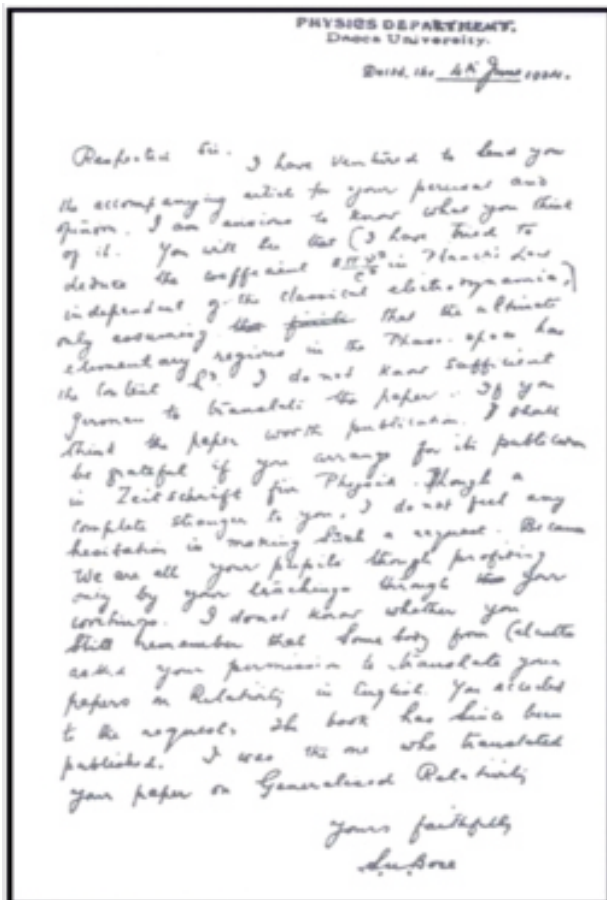 PHYSICS DEPARTMENT.
Dacca University.
Dated, the 4th June 1924.
Respected Sir. I have ventured to send you
the accompanying article for your perusal and
opinion. I am anxious to know what you think
of it. You will see that (I have tried to
deduce the coefficient 8πν²/c³ in Planck's Law
independent of the classical electrodynamics,)
only assuming that the ultimate
elementary regions in the Phase-space has
the content h³. I do not know sufficient
German to translate the paper. If you
think the paper worth publication, I shall
be grateful if you arrange for its publication
in Zeitschrift für Physik. Though a
complete stranger to you, I do not feel any
hesitation in making such a request. Because
We are all your pupils though profiting
only by your teachings through your
writings. I donot know whether you
still remember that somebody from Calcutta
asked your permission to translate your
papers on Relativity in English. You acceded
to the request. The book has since been
published. I was the one who translated
your paper on Generalised Relativity
Yours faithfully
S.N. Bose